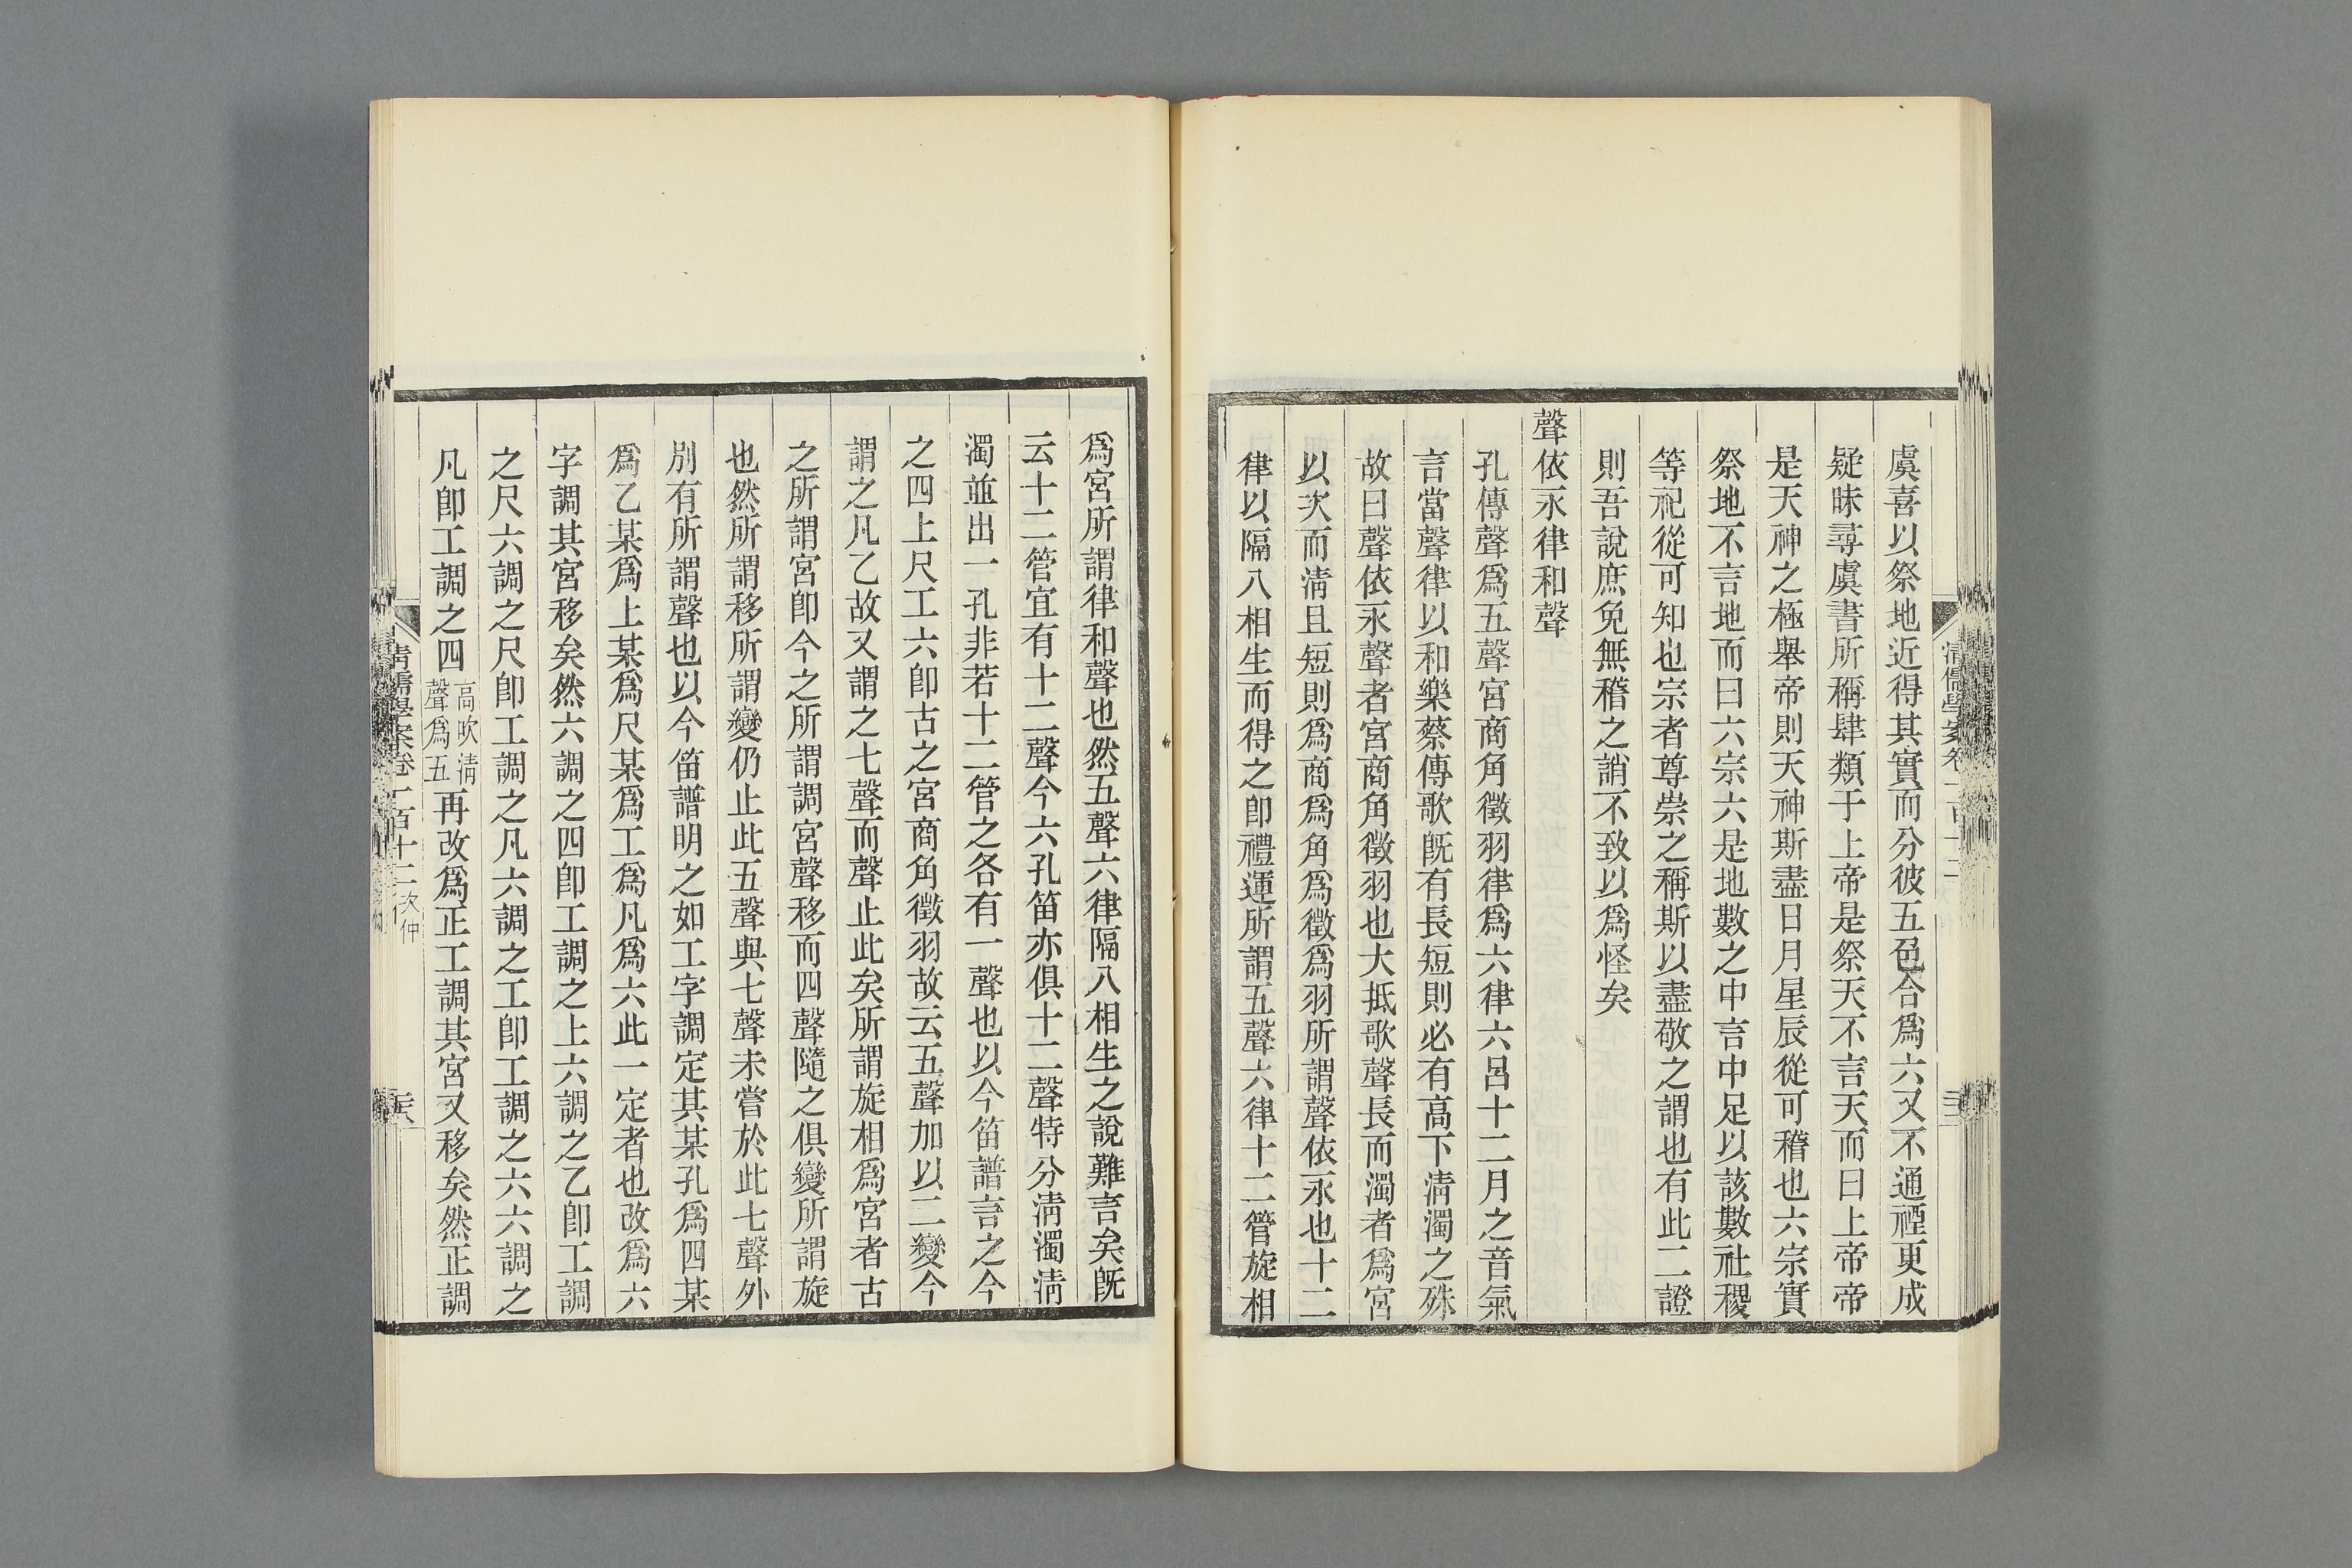 虞喜以祭地近得其實而分彼五色合爲六又不通禋更成
疑昧尋虞書所稱肆類于上帝是祭天不言天而曰上帝帝
是天神之極舉帝則天神斯盡日月星辰從可稽也六宗實
祭地不言地而曰六宗六是地數之中言中足以該數社稷
等祀從可知也宗者尊崇之稱斯以盡敬之謂也有此二證
則吾說庶免無稽之誚不致以爲怪矣
聲依永律和聲
孔傳聲爲五聲宮商角徵羽律爲六律六呂十二月之音氣
言當聲律以和樂蔡傳歌既有長短則必有高下清濁之殊
故曰聲依永聲者宮商角徵羽也大抵歌聲長而濁者爲宮
以次而清且短則爲商爲角爲徵爲羽所謂聲依永也十二
律以隔八相生而得之卽禮運所謂五聲六律十二管旋相
爲宮所謂律和聲也然五聲六律隔八相生之說難言矣既
云十二管宜有十二聲今六孔笛亦俱十二聲特分清濁清
濁並出一孔非若十二管之各有一聲也以今笛譜言之今
之四上尺工六卽古之宮商角徵羽故云五聲加以二變今
謂之凡乙故又謂之七聲而聲止此矣所謂旋相爲宮者古
之所謂宮卽今之所謂調宮聲移而四聲隨之俱變所謂旋
也然所謂移所謂變仍止此五聲與七聲未嘗於此七聲外
別有所謂聲也以今笛譜明之如工字調定其某孔爲四某
爲乙某爲上某爲尺某爲工爲凡爲六此一定者也改爲六
字調其宮移矣然六調之四卽工調之上六調之乙卽工調
之尺六調之尺卽工調之凡六調之工卽工調之六六調之
凡卽工調之四高吹清聲爲五再改爲正工調其宮又移矣然正調
清儒學案卷二百十二 次仲